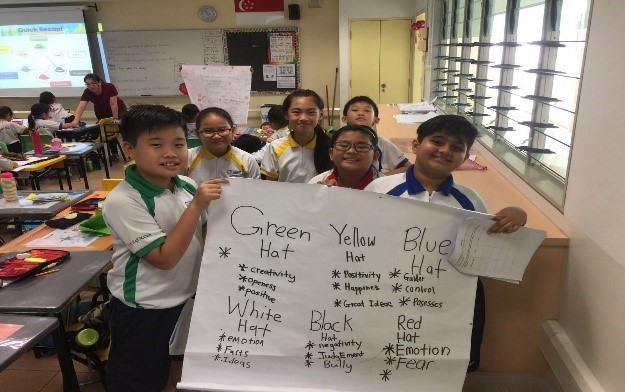 Quick Recap!
Green
Hat
*
* creativity
* openess
* positive
Yellow
Hat
* Positivity
* Happiness
* Great Ideas
Blue
Hat
* control
White
Hat
* EMOTION
* Facts
* Ideas
Black
Hat
* negativity
* Judgement
* Bully
Red
Hat
* Emotion
* Fear
*